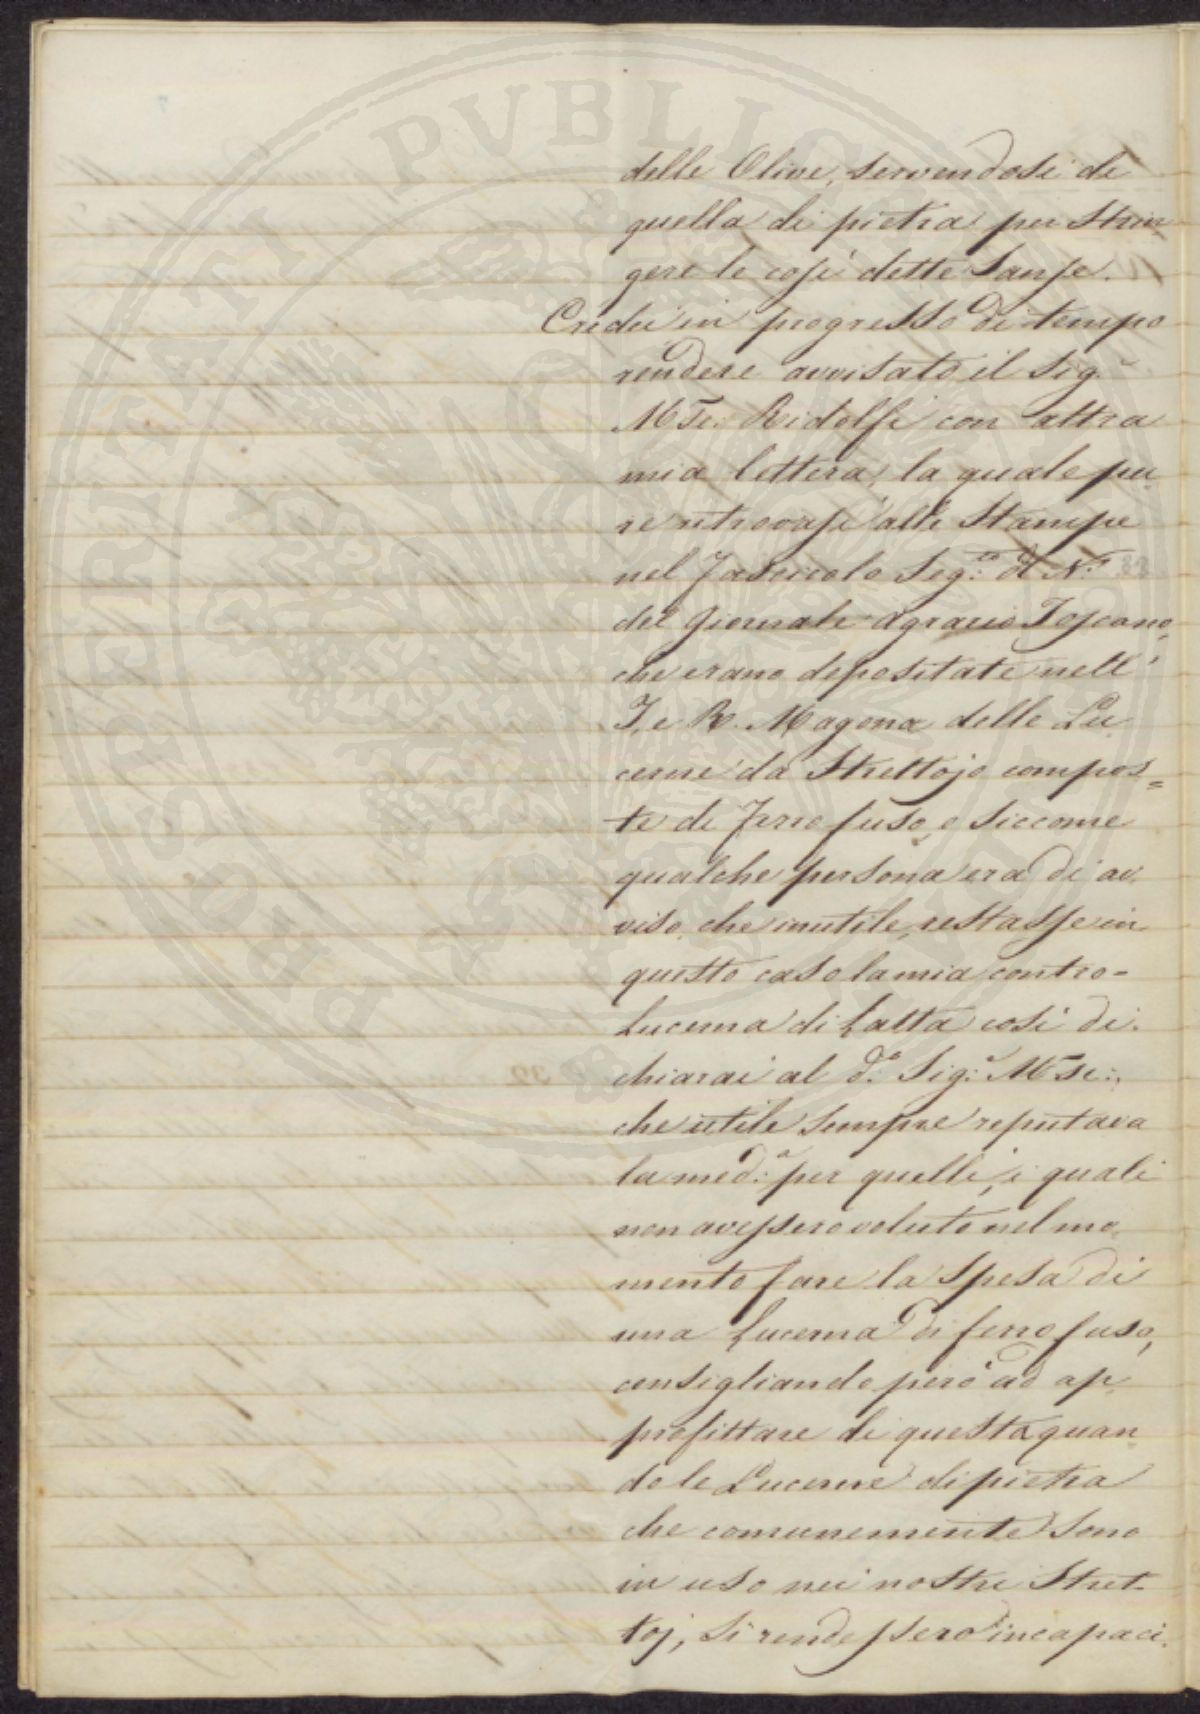 delle Olive, servendosi di
quella di pietra per Strin
gere le così dette Sanse.
Credei in progresso di tempo
rendere avvisato il Sig.r
M.se Ridolfi con altra
mia lettera, la quale pu-
re ritrovasi alle Stampe
nel Fascicolo Seg.to di N.o
del Giornale Agrario Toscano,
che erano depositate nell'
I. e R. Magona delle Lu
cerne da Strettojo compos=
te di Ferro fuso, e siccome
qualche persona era di av
viso che inutile restasse in
questo caso la mia contro-
Lucerna di Latta così di.
chiarai al d.o Sig.r M.se:,
che utile sempre reputava
la med.a per quelli, i quali
non avessero voluto nel mo
mento fare la Spesa di
una Lucerna di ferro fuso,
consigliando però ad ap
profittare di questa quan
do le Lucerne di pietra
che comunemente Sono
in uso nei nostri Stret-
toj, si rendessero incapaci.
PROSPERITATI PVBLIC